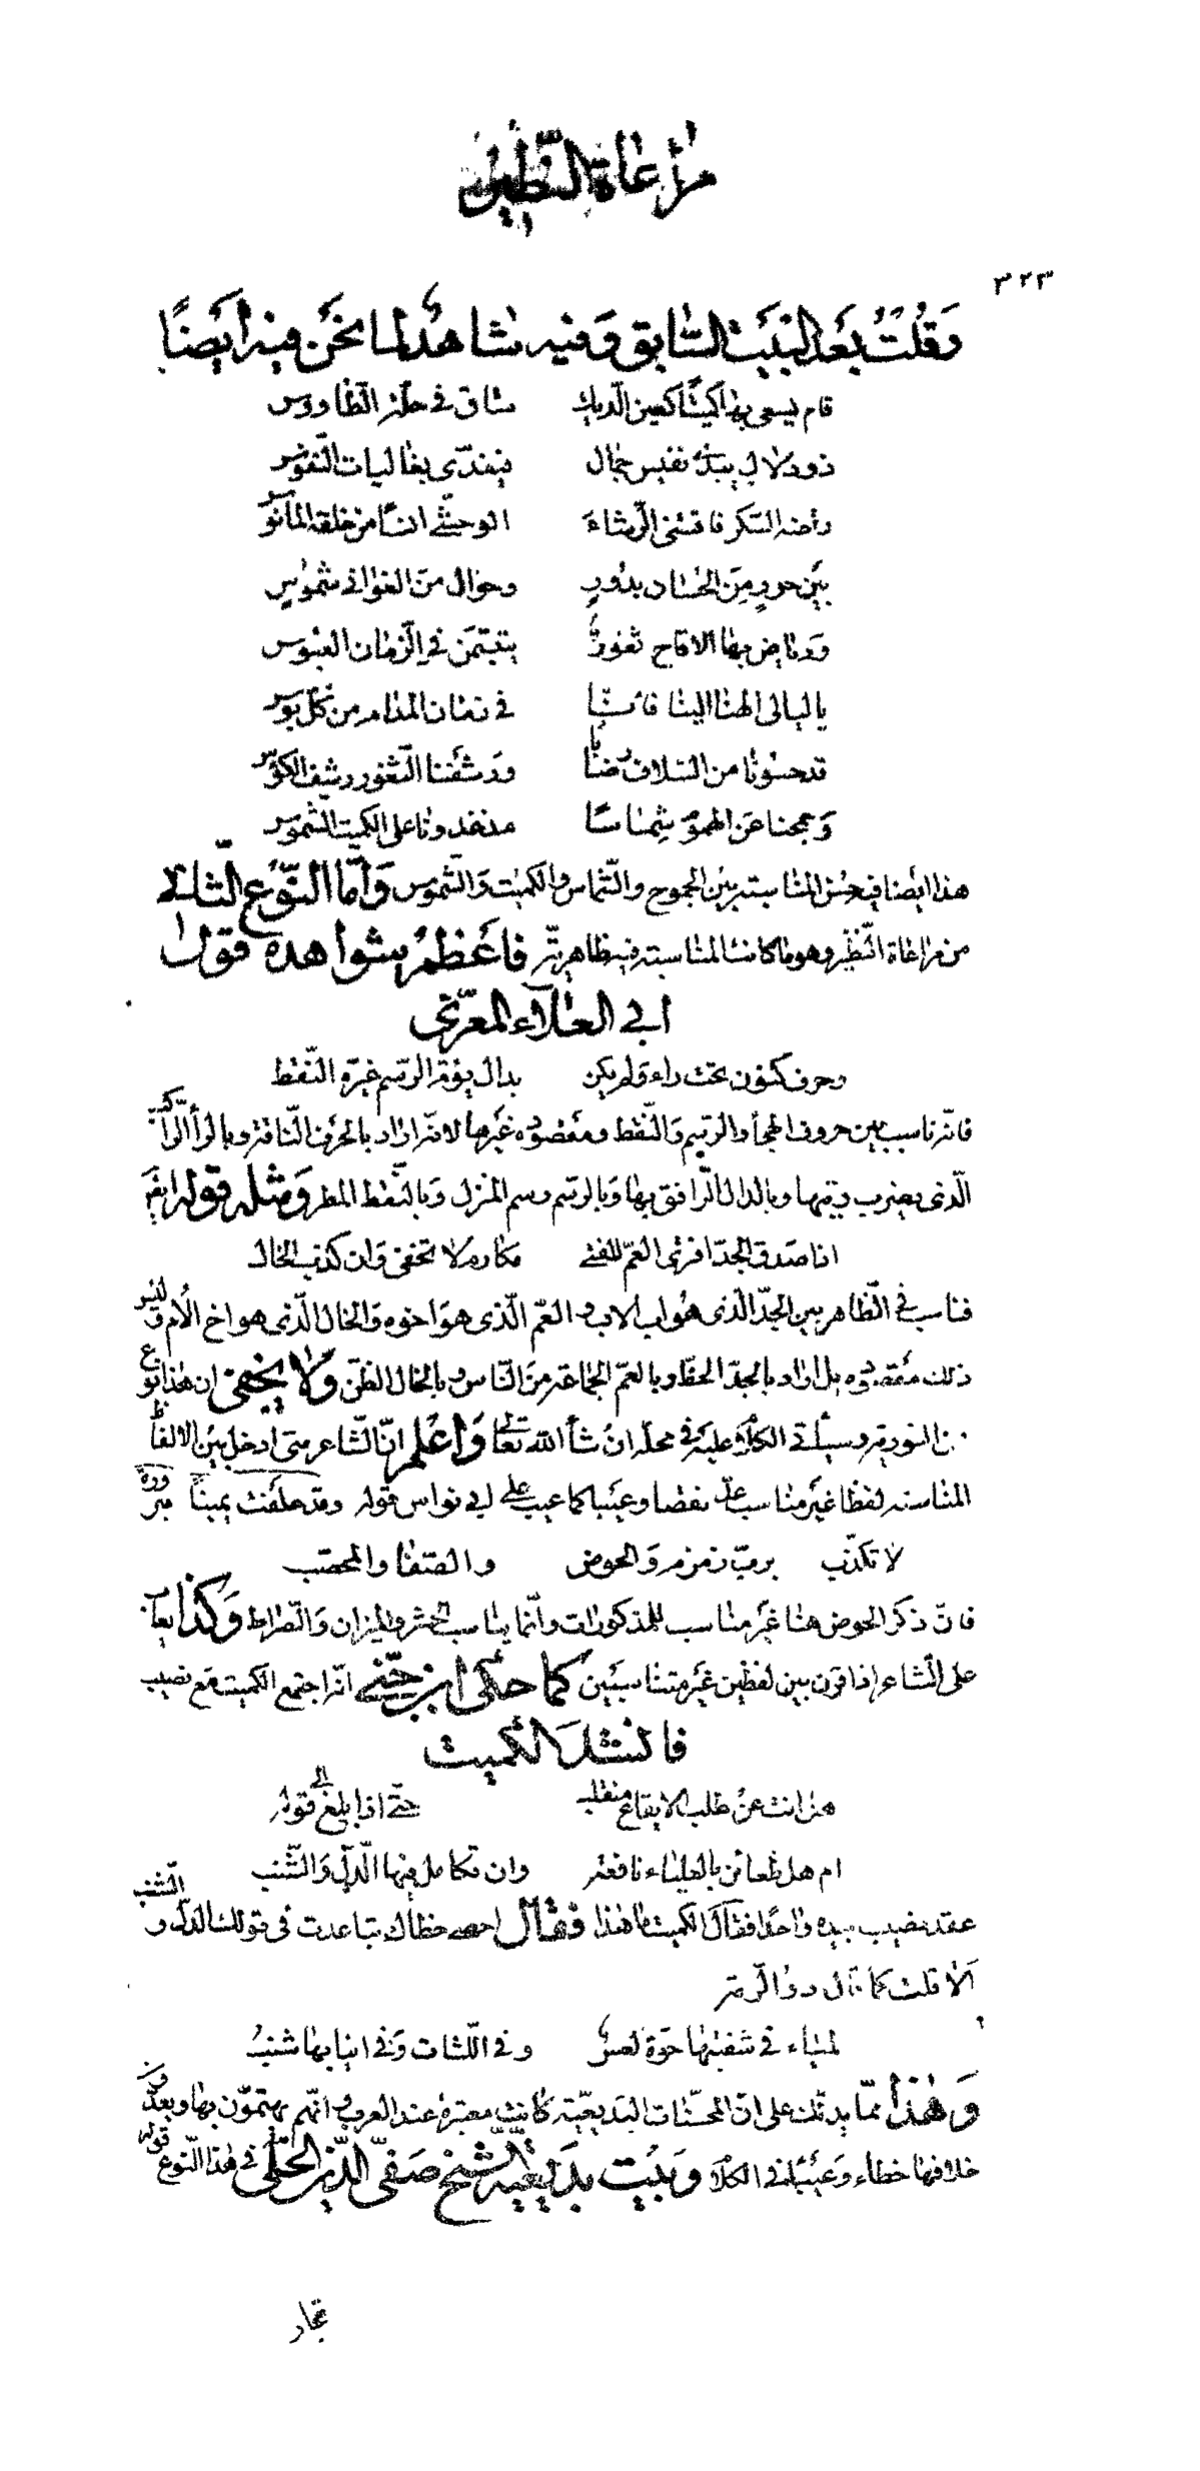 مراعاة النظير
٣٢٣
وقلت بعد البيت السابق وفيه شاهد لما نحن فيه أيضًا
قام يسعى بها كميتًا كعين الديك ساق في حلة الطاووس
ذو دلال يبدي نفيس جمال فيفدى بغاليات النفوس
راضه السكر فاقتنى الرشاء الوحشي انسًا من خلقه المأنوس
بين حور من الحسان بدور وحوال من الغواني شموس
ورياض بها الاقاح ثغور يتبسمن في الزمان العبوس
يا ليالي الهنا الينا فانا في زمان المدام من كل بوس
قد حسونا من السلاف رضابا ورشفنا الثغور رشف الكؤس
وجمحنا عن الهموم شماسًا مذ غدونا على الكميت الشموس
هذا ايضا فيه حسن المناسبة بين الجموح والشماس والكميت والشموس وأما النوع الثاني
من مراعاة النظير وهو ما كانت المناسبة فيه ظاهرية فأعظم شواهده قول
أبي العلاء المعري
وحرف كنون تحت راء ولم يكن بدال يؤم الرسم غيره النقط
فانه ناسب بين حروف الهجاء والرسم والنقط ومقصوده غيرها لانه اراد بالحرف الناقة وبالراء الراكب
الذي يضرب ريتها وبالدال الرافق بها وبالرسم رسم المنزل وبالنقط المطر ومثله قوله ايضًا
اذا صدق الجد افترى العم للفتى مكارم لا تخفى وان كذب الخال
فناسب في الظاهر بين الجد الذي هو اب الاب والعم الذي هو اخوه والخال الذي هو اخ الأم وليس
ذلك مقصوده بل اراد بالجد الحظ وبالعم الجماعة من الناس وبالخال الظن ولا يخفى ان هذا نوع
من التورية وسيأتي الكلام عليه في محله ان شاء الله تعالى واعلم ان الشاعر متى ادخل بين الالفاظ
المناسبة لفظا غير مناسب عد نقصا وعيبا كما عيب على ابي نواس قوله وقد حلفت يمينًا مبرورة
لا تكذب برب زمزم والحوض والصفا والمحصب
فان ذكر الحوض هنا غير مناسب للمذكورات وانما يناسب الحشر والميزان والصراط وكذا يعاب
على الشاعر اذا قرن بين لفظين غير متناسبين كما حكى ابن جني انه اجتمع الكميت مع نصيب
فانشد الكميت
هل انت عن طلب الايقاع منقلب حتى اذا بلغ الى قوله
ام هل ظعائن بالعلياء نافعة وان تكامل فيها الدل والشنب
عقد نصيب بيده واحدًا فقال الكميت ما هذا فقال احصى خطأك تباعدت في قولك الدل والشنب
الا قلت كما قال ذو الرمة
لمياء في شفتيها حوة لعس وفي اللثات وفي انيابها شنب
وهذا مما يدلك على ان المحسنات البديعية كانت معتبرة عند العرب وانهم يهتمون بها ويعدون
خلافها خطاء وعيبا في الكلام وبيت بديعية الشيخ صفي الدين الحلي في هذا النوع قوله
تجار